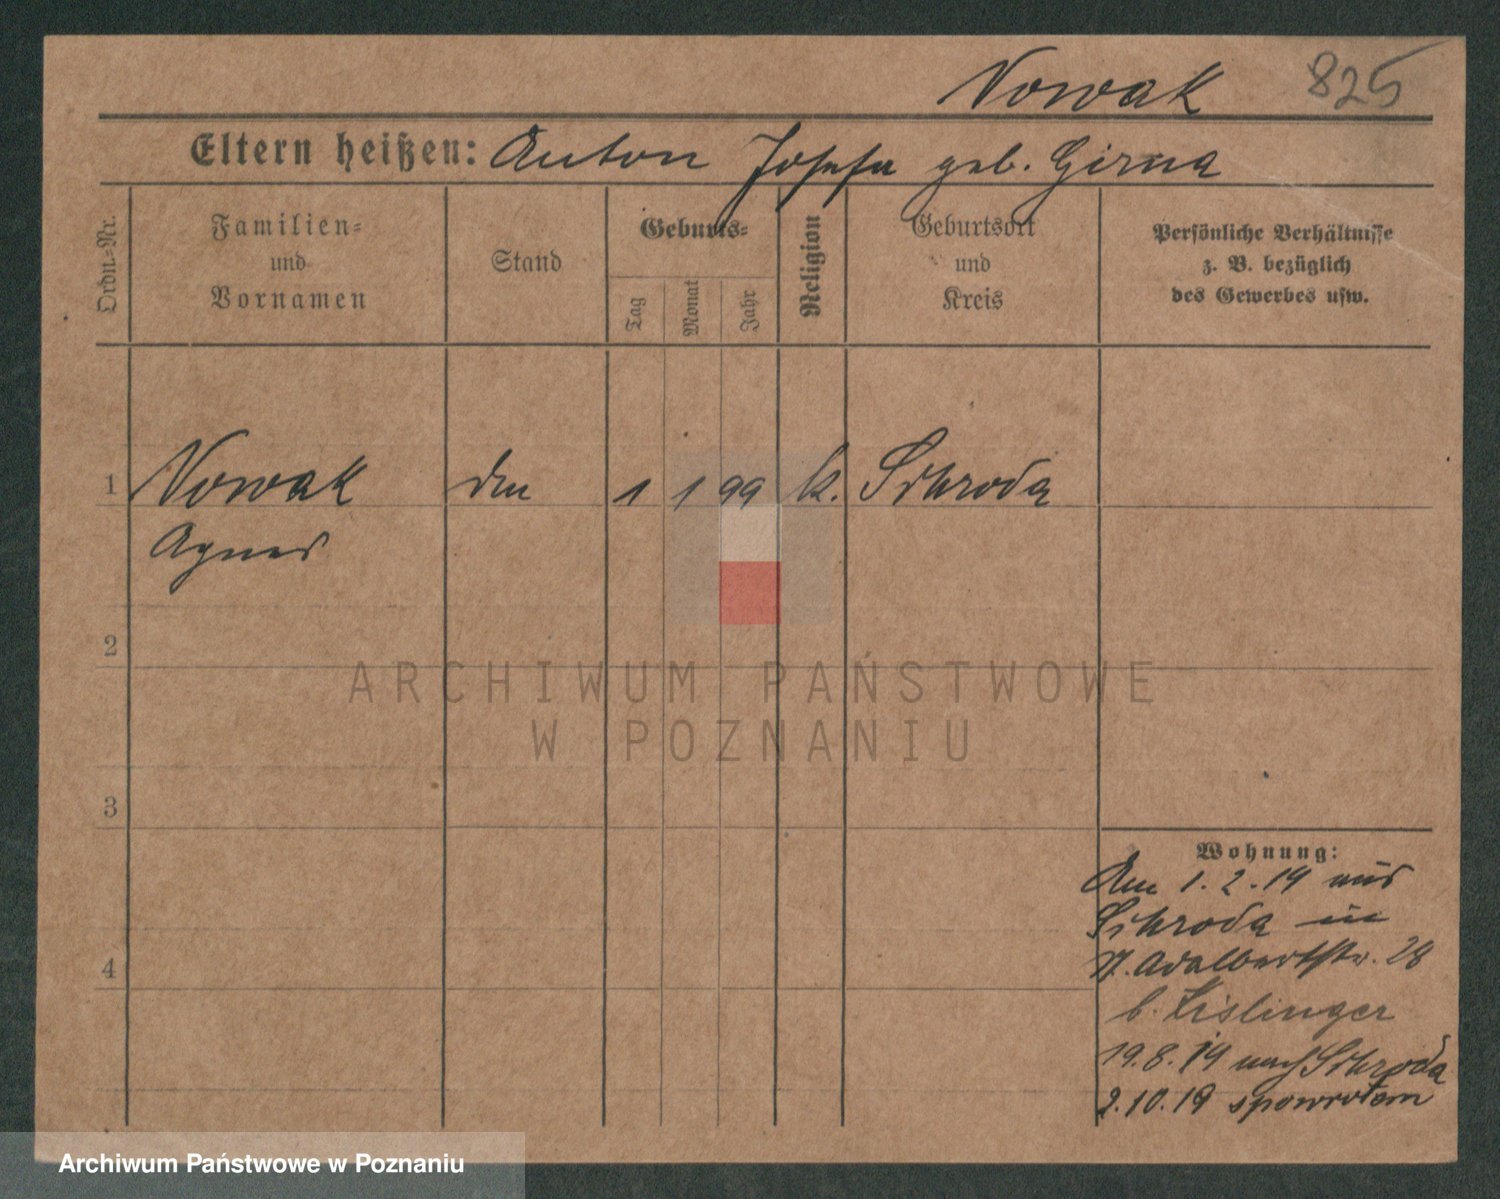 Nowak 825
Eltern heißen: Anton Josefa geb. Girna
Ordn.-Nr.
Familien-
und
Vornamen
Stand
Geburts-
Tag
Monat
Jahr
Religion
Geburtsort
und
Kreis
Persönliche Verhältnisse
z. B. bezüglich
des Gewerbes usw.
1 Nowak 1 1 99 k. Schroda
Agnes
2
3
4
Wohnung:
Am 1.2.19 aus
Schroda in
St. Adalbertstr. 28
b. Kislinger
19.8.19 nach Schroda
2.10.19 spowrotem
ARCHIWUM PAŃSTWOWE
W POZNANIU
Archiwum Państwowe w Poznaniu